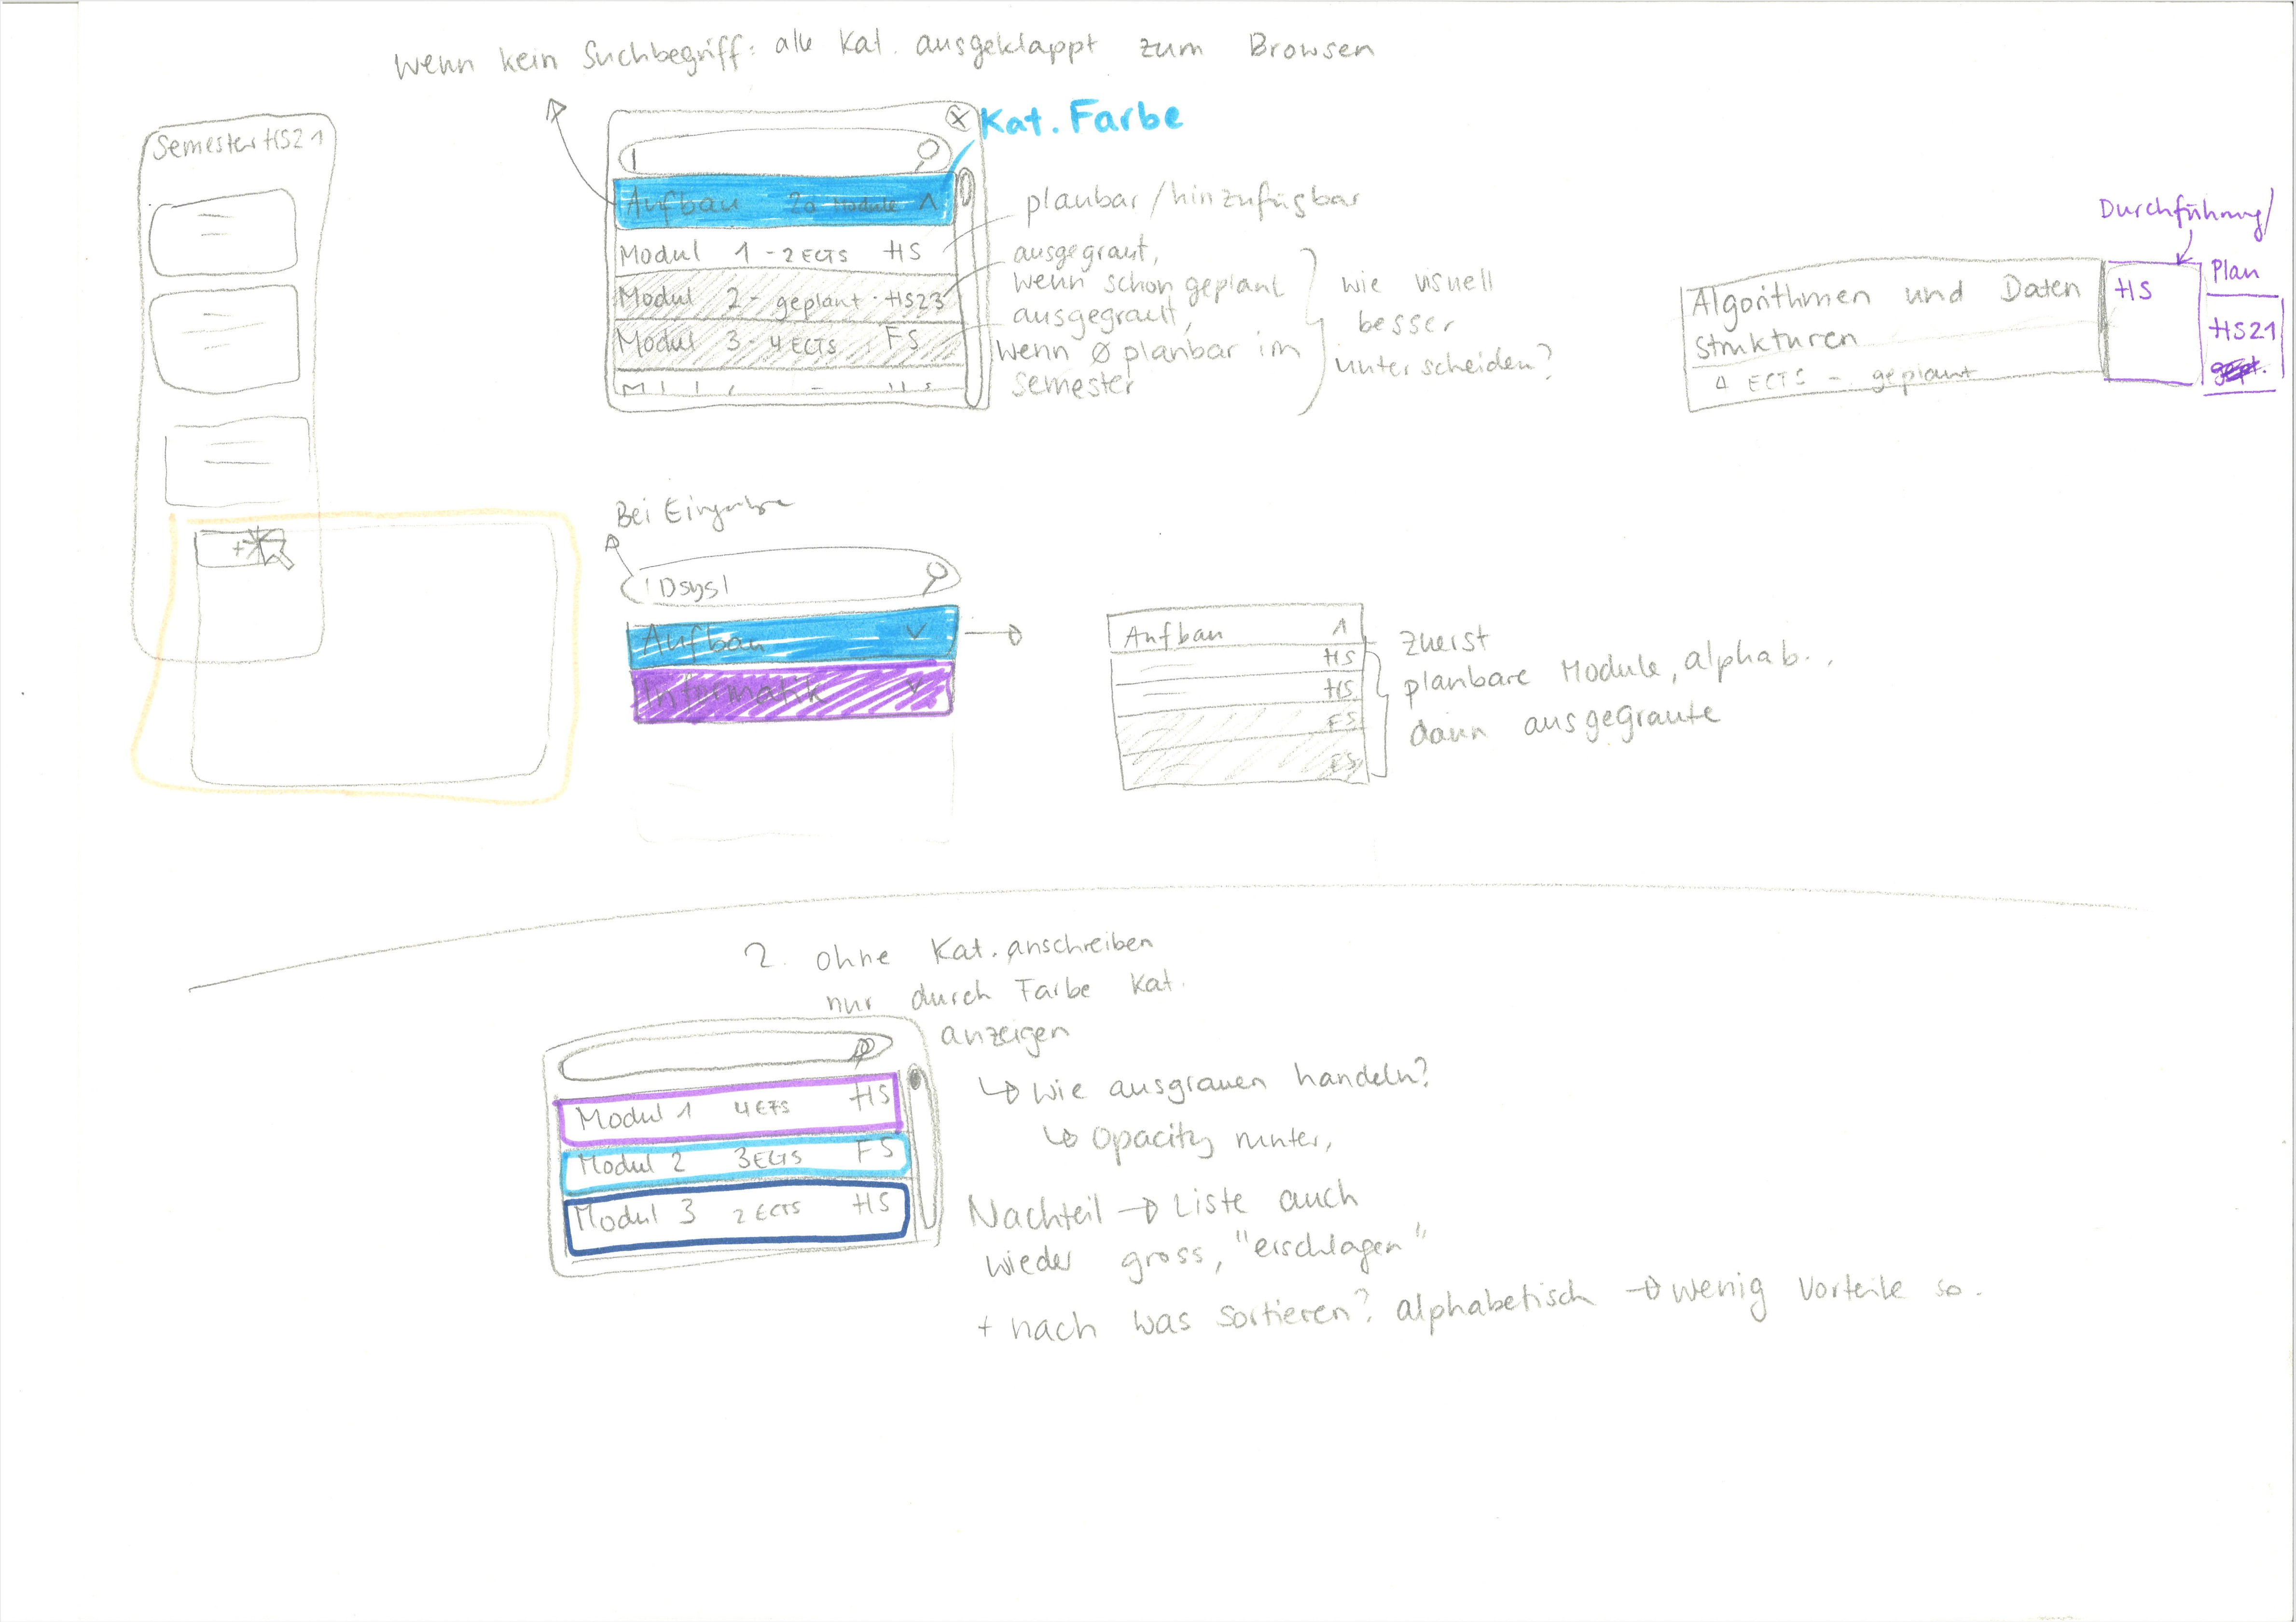 Wenn kein Suchbegriff: alle Kat. ausgeklappt zum Browsen
Semester HS21
Kat. Farbe
Aufbau 20 Module
Modul 1 - 2 ECTS HS
Modul 2 - geplant · HS23
Modul 3 - 4 ECTS FS
planbar / hinzufügbar
ausgegraut,
wenn schon geplant
ausgegraut,
wenn Ø planbar im
semester
wie visuell
besser
unterscheiden?
Durchführung
Algorithmen und Daten
strukturen
4 ECTS - geplant
HS
Plan
HS21
gepl.
+
Bei Eingabe
Dsys
Aufbau
Informatik
Aufbau
HS
HS
FS
FS
zuerst
planbare Module, alphab.,
dann ausgegraute
2. ohne Kat. anschreiben
nur durch Farbe Kat.
anzeigen
Modul 1 4 ECTS HS
Modul 2 3 ECTS FS
Modul 3 2 ECTS HS
↳ wie ausgrauen handeln?
↳ opacity runter,
Nachteil → Liste auch
wieder gross, "erschlagen"
+ nach was sortieren? alphabetisch → wenig Vorteile so.